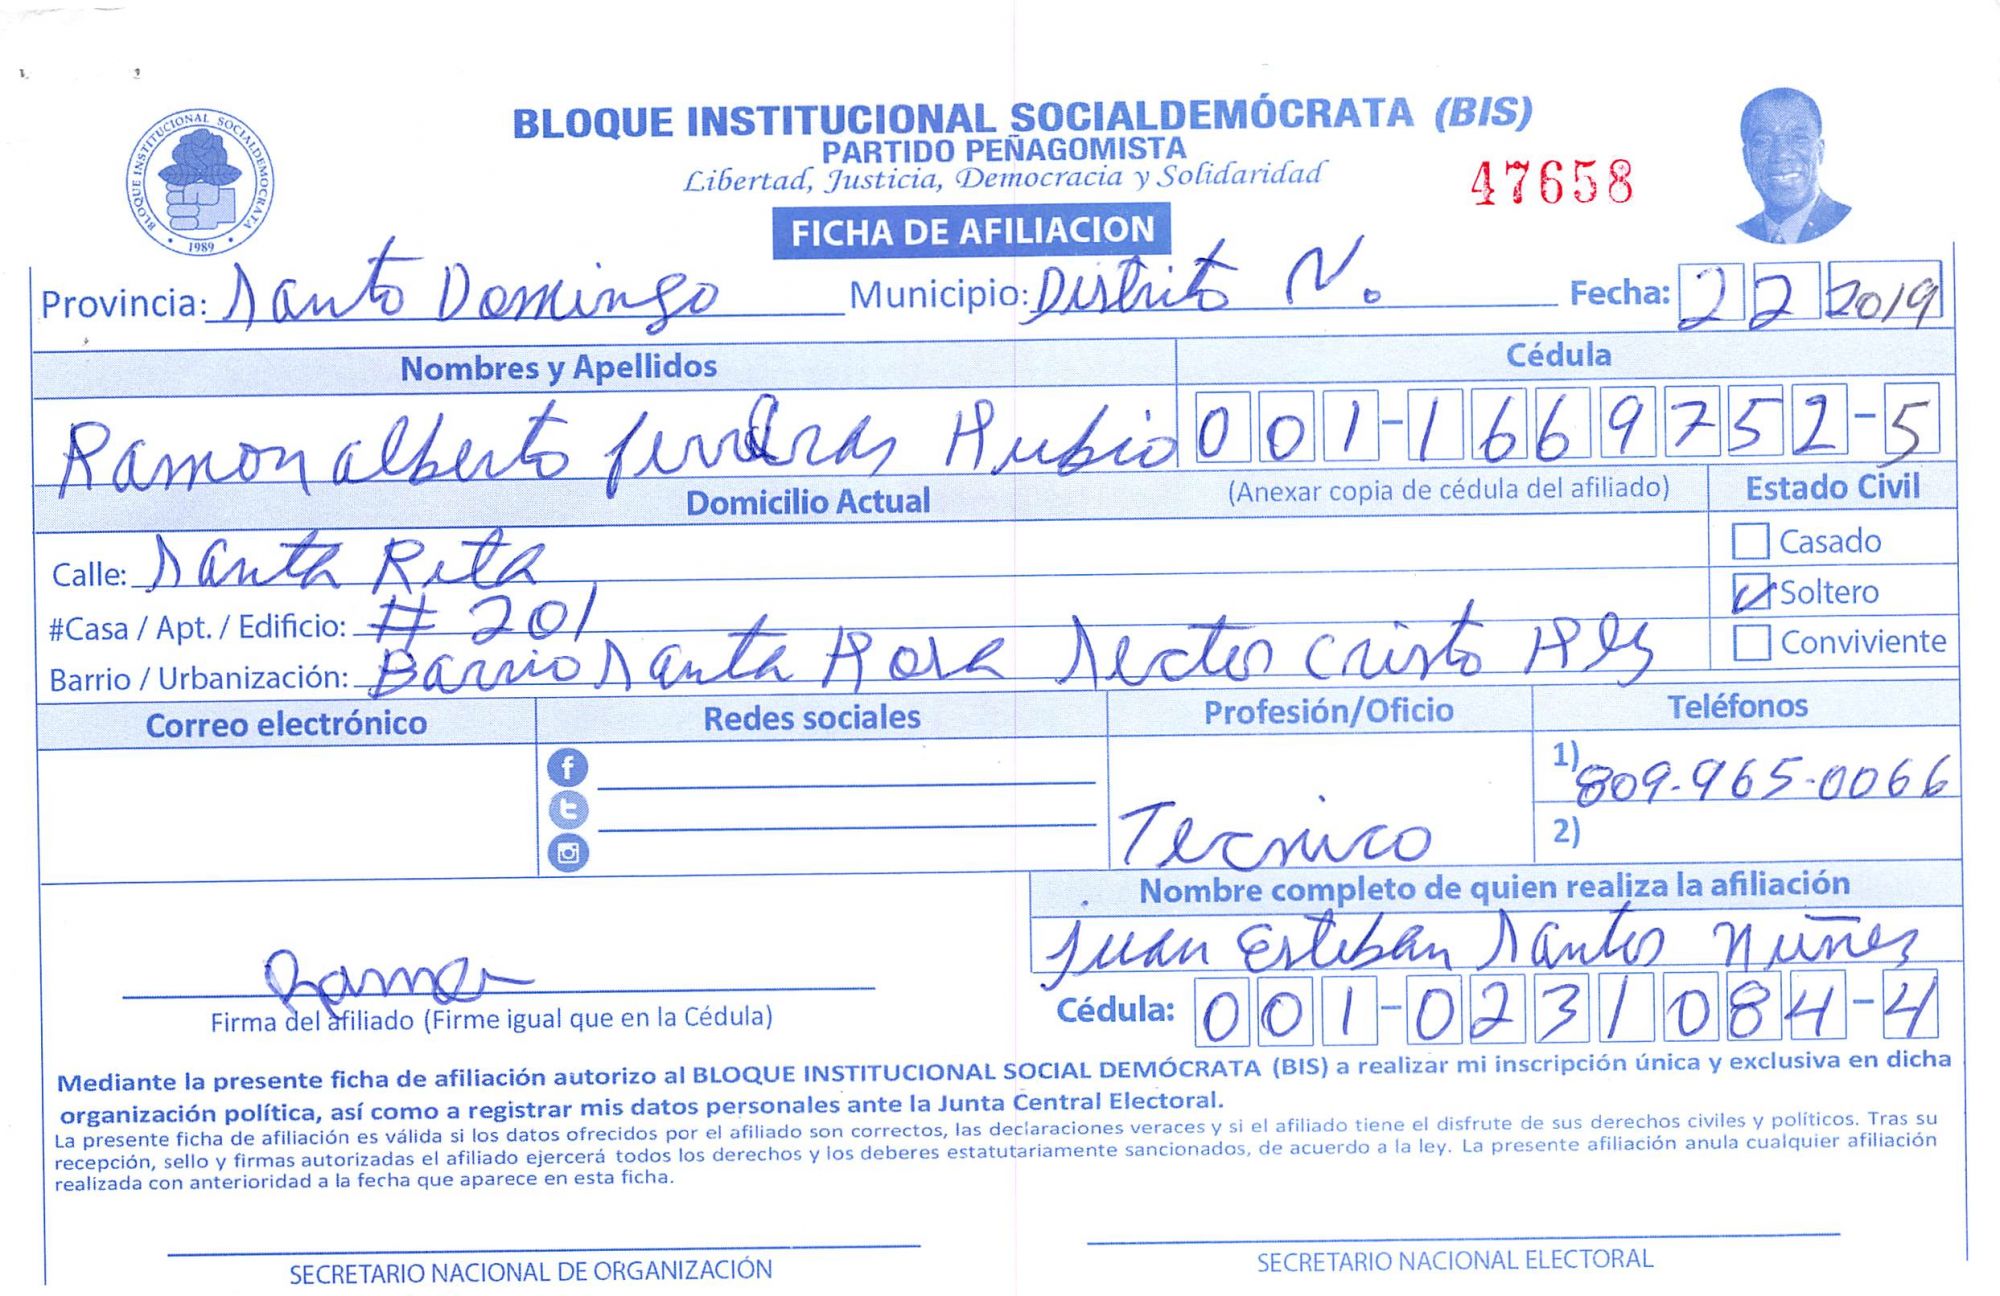 BLOQUE INSTITUCIONAL SOCIALDEMOCRATA
1989
BLOQUE INSTITUCIONAL SOCIALDEMÓCRATA (BIS)
PARTIDO PEÑAGOMISTA
Libertad, Justicia, Democracia y Solidaridad
47658
FICHA DE AFILIACION
Provincia: Santo Domingo Municipio: Distrito N. Fecha: 2 2 2019
Nombres y Apellidos Cédula
Ramon alberto Rubio 001-1669752-5
Domicilio Actual (Anexar copia de cédula del afiliado) Estado Civil
Calle: Santa Rita Casado
#Casa / Apt. / Edificio: # 201 Soltero
Barrio / Urbanización: Barrio Santa Rosa Sector Cristo Rey Conviviente
Correo electrónico Redes sociales Profesión/Oficio Teléfonos
1) 809-965-0066
Tecnico 2)
Nombre completo de quien realiza la afiliación
Juan Esteban Santos Núñez
Ramon
Firma del afiliado (Firme igual que en la Cédula) Cédula: 001-0231084-4
Mediante la presente ficha de afiliación autorizo al BLOQUE INSTITUCIONAL SOCIAL DEMÓCRATA (BIS) a realizar mi inscripción única y exclusiva en dicha
organización política, así como a registrar mis datos personales ante la Junta Central Electoral.
La presente ficha de afiliación es válida si los datos ofrecidos por el afiliado son correctos, las declaraciones veraces y si el afiliado tiene el disfrute de sus derechos civiles y políticos. Tras su
recepción, sello y firmas autorizadas el afiliado ejercerá todos los derechos y los deberes estatutariamente sancionados, de acuerdo a la ley. La presente afiliación anula cualquier afiliación
realizada con anterioridad a la fecha que aparece en esta ficha.
SECRETARIO NACIONAL DE ORGANIZACIÓN SECRETARIO NACIONAL ELECTORAL